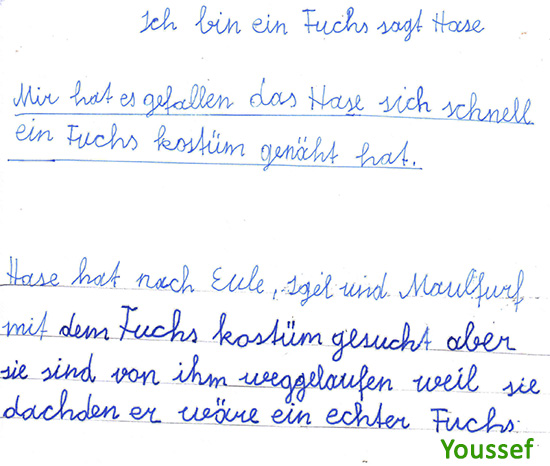 Ich bin ein Fuchs sagt Hase
Mir hat es gefallen das Hase sich schnell
ein Fuchs kostüm genäht hat.
Hase hat nach Eule, Igel und Maulfurf
mit dem Fuchs kostüm gesucht aber
sie sind von ihm weggelaufen weil sie
dachden er wäre ein echter Fuchs.
Youssef